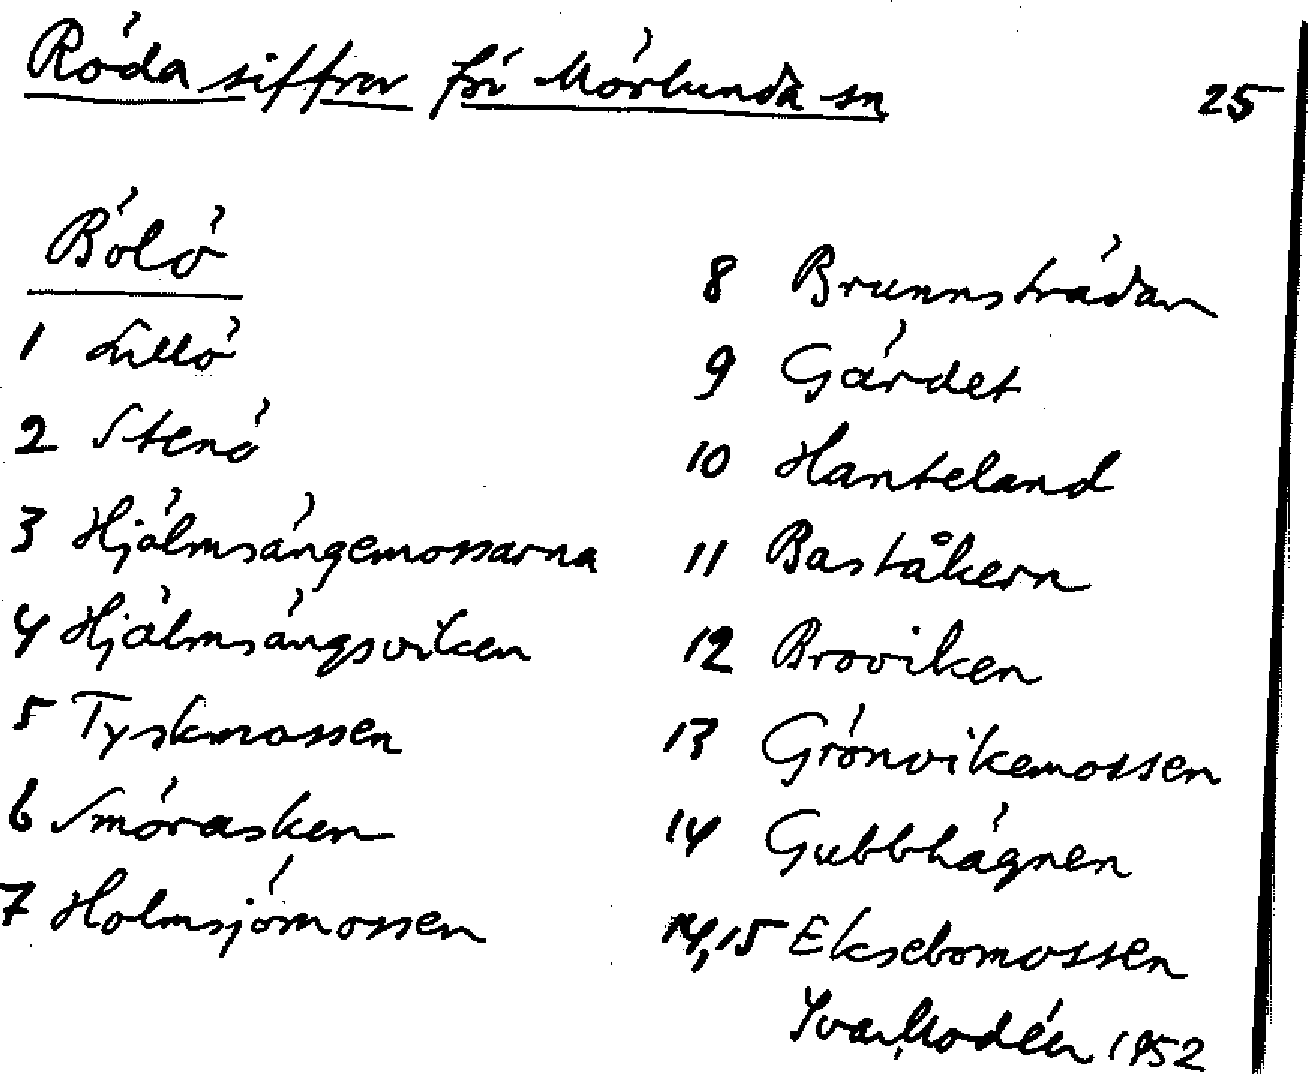 Röda siffror frå Mörlunda sn
25
Bölö
1 Lillö
2 Stenö
3 Hjälmsängemossarna
4 Hjälmsängsviken
5 Tyskmossen
6 Smörasken
7 Holmsjömossen
8 Brunnsträdan
9 Gärdet
10 Hanteland
11 Baståkern
12 Broviken
13 Grönvikemossen
14 Gubbhägnen
14,15 Eksebomossen
Ivar Modéer 1952